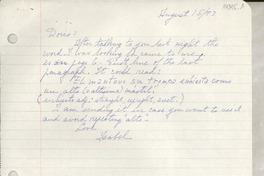 August 15/77
Doris:
After talking to you last night the
word I was looking for came to
is on page 6. First line of the last
paragraph. It could read:
"El mentado sin tronco enhiesto como
un alto (altísimo) mástil"
(enhiesto adj: straight, upright, erect.)
I am sending it in case you want to use it
and avoid repeating "alto".
Love
Isabel